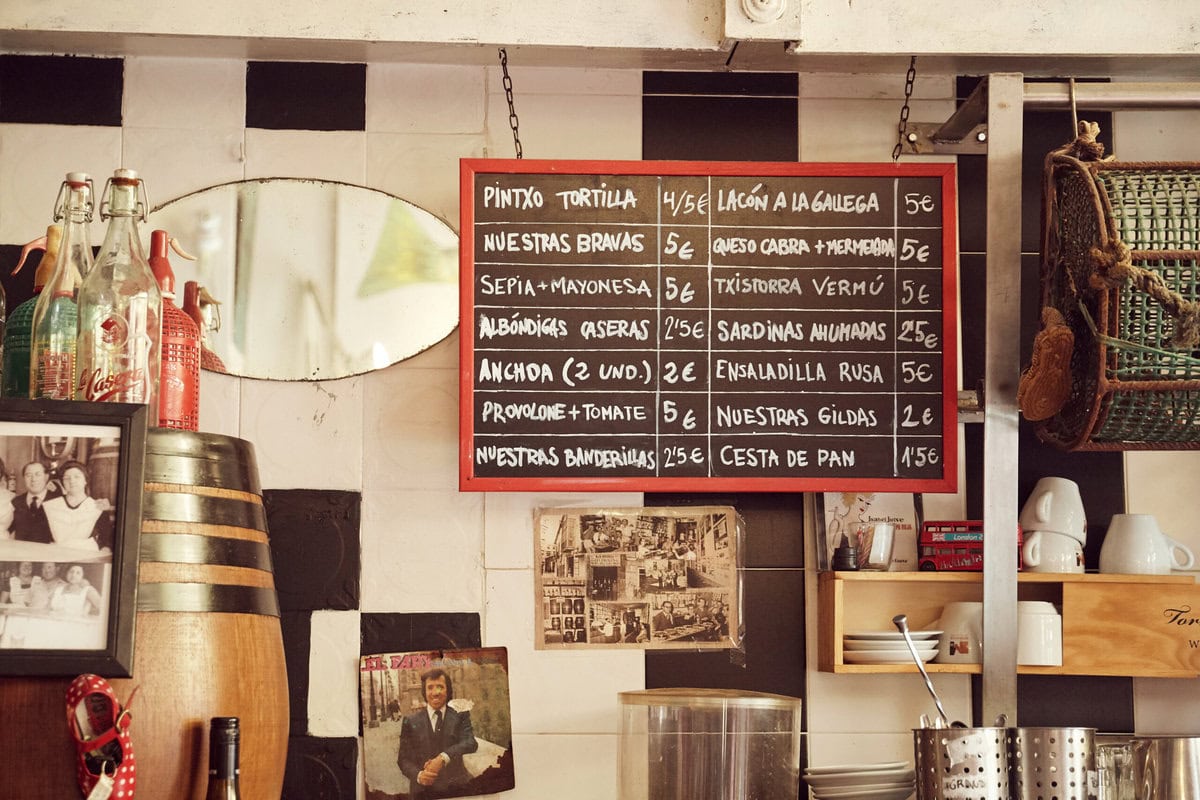 PINTXO TORTILLA 4/5€
NUESTRAS BRAVAS 5€
SEPIA+MAYONESA 5€
ALBÓNDIGAS CASERAS 2'5€
ANCHOA (2 UND.) 2€
PROVOLONE+TOMATE 5€
NUESTRAS BANDERILLAS 2'5€
LACÓN A LA GALLEGA 5€
QUESO CABRA + MERMELADA 5€
TXISTORRA VERMÚ 5€
SARDINAS AHUMADAS 2'5€
ENSALADILLA RUSA 5€
NUESTRAS GILDAS 2€
CESTA DE PAN 1'5€
La Casera
EL FARY
London
Tor